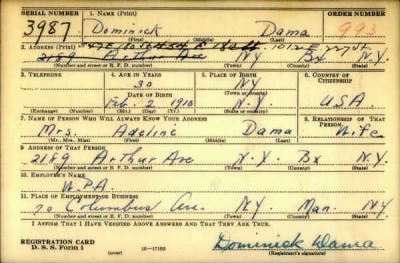 SERIAL NUMBER 1. NAME (Print) ORDER NUMBER
3987 Dominick Dama 993
(First) (Middle) (Last)
2. ADDRESS (Print) 1012 E 227 St.
2189 Arthur Ave N.Y. Bx N.Y.
(Number and street or R. F. D. number) (Town) (County) (State)
3. TELEPHONE 4. AGE IN YEARS 5. PLACE OF BIRTH 6. COUNTRY OF CITIZENSHIP
30 N.Y.
DATE OF BIRTH (Town or county)
Feb. 2 1910 N.Y. U.S.A.
(Exchange) (Number) (Mo.) (Day) (Yr.) (State or country)
7. NAME OF PERSON WHO WILL ALWAYS KNOW YOUR ADDRESS 8. RELATIONSHIP OF THAT PERSON
Mrs. Adeline Dama Wife
(Mr., Mrs., Miss) (First) (Middle) (Last)
9. ADDRESS OF THAT PERSON
2189 Arthur Ave N.Y. Bx N.Y.
(Number and street or R. F. D. number) (Town) (County) (State)
10. EMPLOYER'S NAME
W.P.A.
11. PLACE OF EMPLOYMENT OR BUSINESS
70 Columbus Ave. N.Y. Man. N.Y.
(Number and street or R. F. D. number) (Town) (County) (State)
I AFFIRM THAT I HAVE VERIFIED ABOVE ANSWERS AND THAT THEY ARE TRUE.
REGISTRATION CARD
D. S. S. Form 1 (over) 16—17105 Dominick Dama
(Registrant's signature)